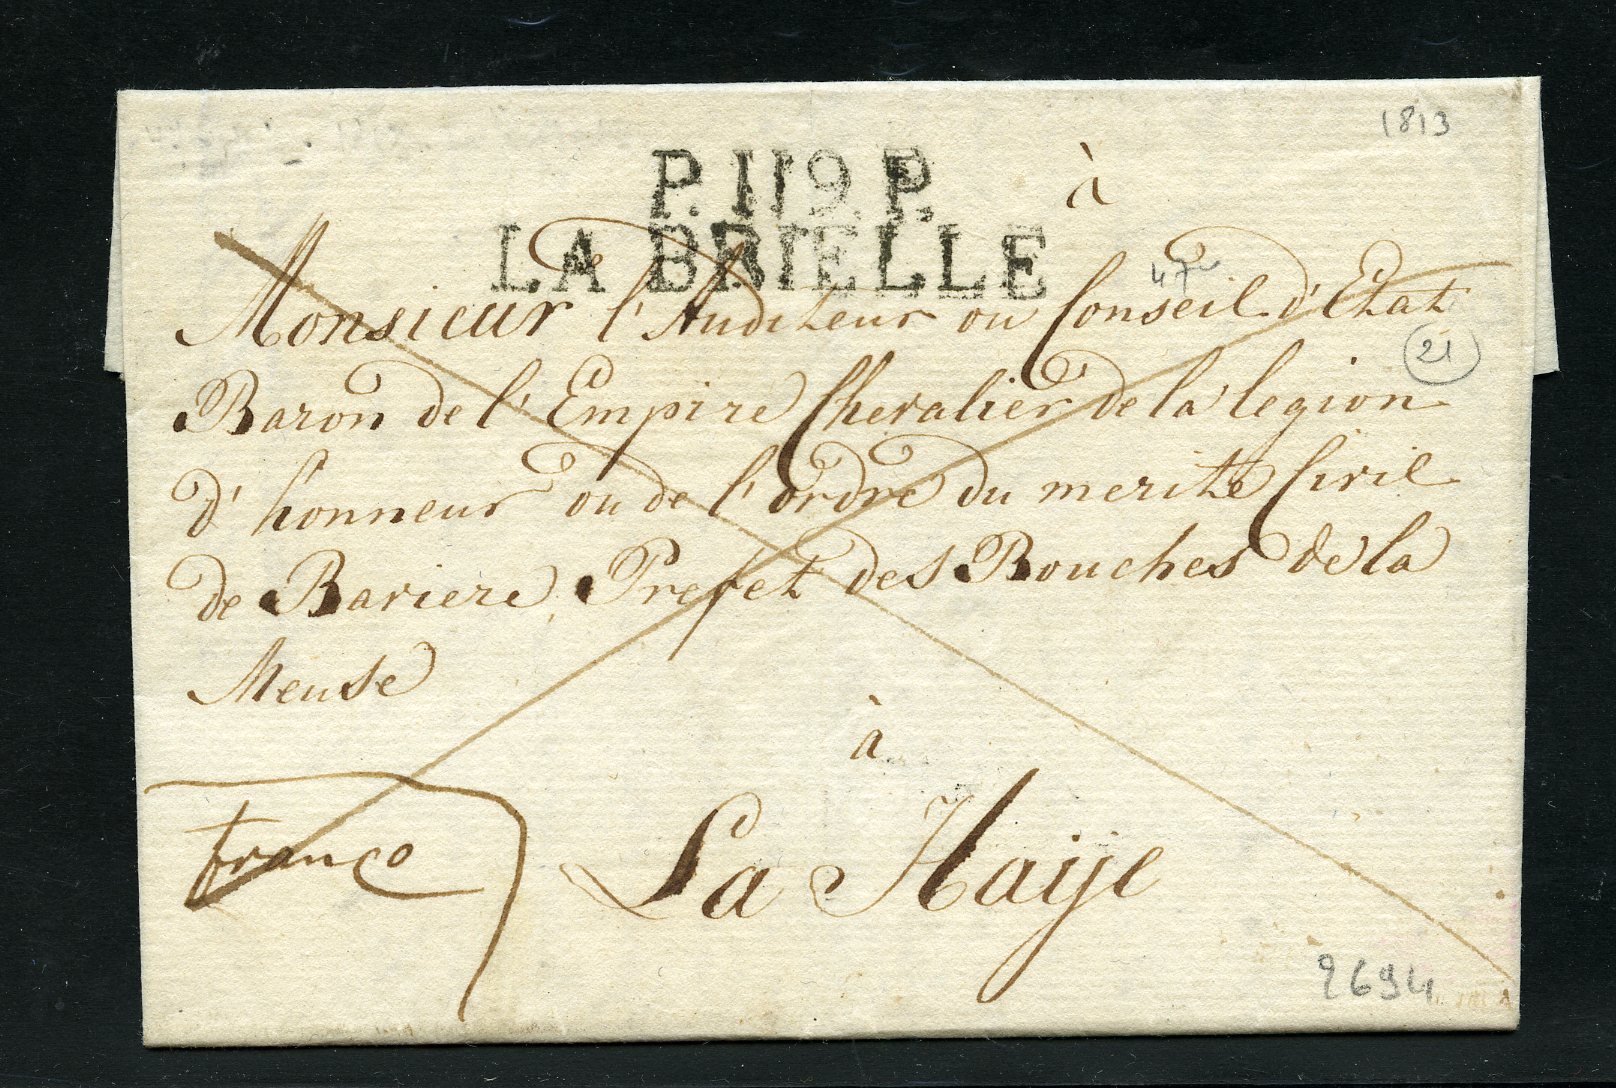 1813
P.119.P.
LA BRIELLE
à
47
Monsieur l'Auditeur ou Conseil d'Etat
21
Baron de l'Empire Chevalier de la legion
d'honneur ou de l'ordre du merite Civil
de Baviere, Prefet des Bouches de la
Meuse
à
franco
La Haije
2694